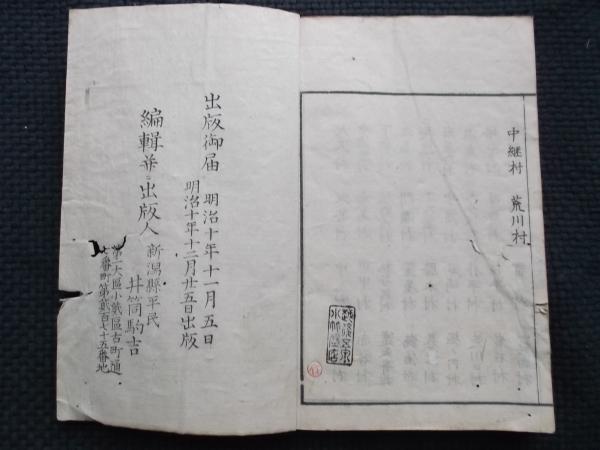 中継村 荒川村
出版御届 明治十年十一月五日
明治十年十二月廿五日出版
編輯并ニ出版人 新潟縣平民
井筒駒吉
第一大區小貳區古町通
番町第貳百七十五番地